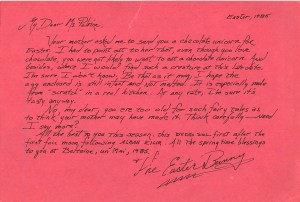 Easter, 1985
My Dear Mr.
Your mother asked me to send you a chocolate unicorn for
Easter. I had to point out to her that, even though you love
chocolate, you were not likely to want to eat a chocolate unicorn. And
besides, where I would find such a creature at this late date
I'm sure I don't know. Be that as it may, I hope the
egg enclosed is still intact and not melted. It is especially made
from "scratch" in a real kitchen. At any rate, I'm sure it's
tasty anyway.
No, my dear, you are too old for such fairy tales as
to think your mother may have made it. Think carefully
I say more?
All the best to you this season, this first after the
first full moon following All the springtime blessings
to you at 1985.
The Easter Bunny